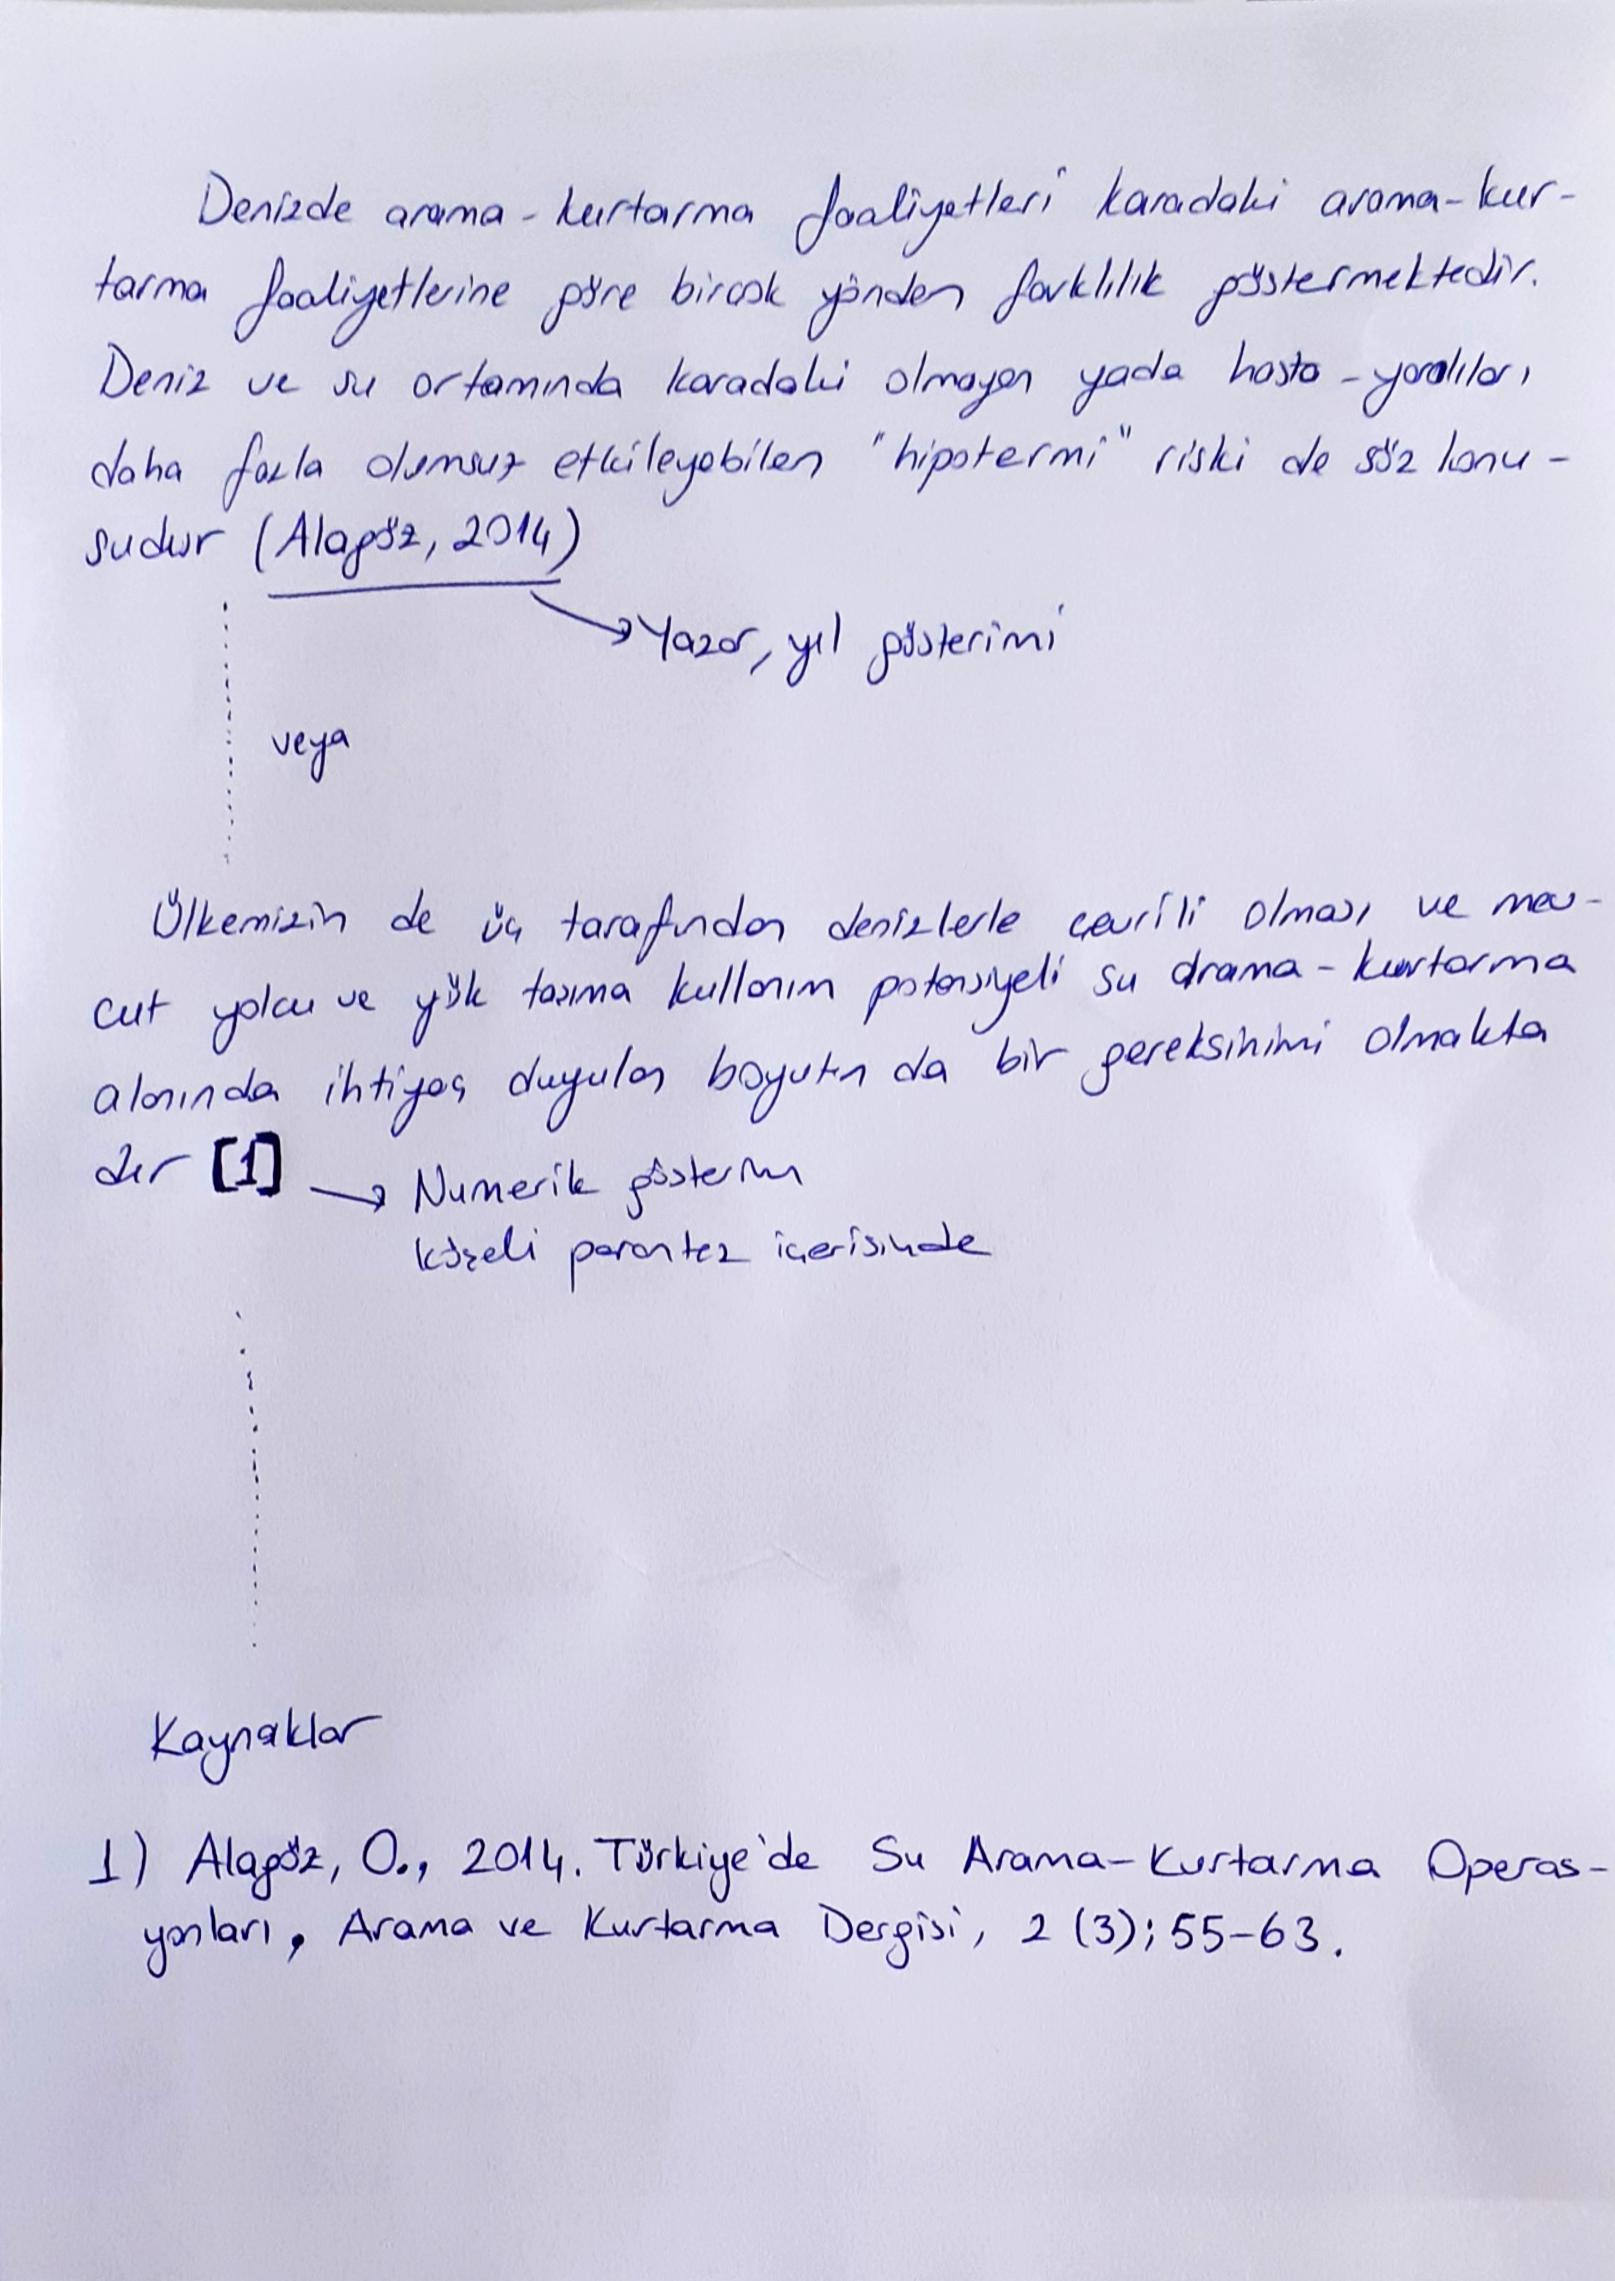 Denizde arama-kurtarma faaliyetleri karadaki arama-kur-
tarma faaliyetlerine göre bircok yönden farklılık göstermektedir.
Deniz ve su ortamında karadaki olmayan yada hasta-yaralıları
daha fazla olumsuz etkileyebilen "hipotermi" riski de söz konu-
sudur (Alagöz, 2014)
Yazar, yıl gösterimi
veya
Ülkemizin de üç tarafından denizlerle çevrili olması ve mev-
cut yolcu ve yük tasıma kullanım potansiyeli su arama-kurtarma
alanında ihtiyaç duyulan boyutun da bir gereksinimi olmakta
dır [1]
Numerik gösterim
köşeli parantez içerisinde
Kaynaklar
1) Alagöz, O., 2014. Türkiye'de Su Arama-Kurtarma Operas-
yonları, Arama ve Kurtarma Dergisi, 2 (3); 55-63.